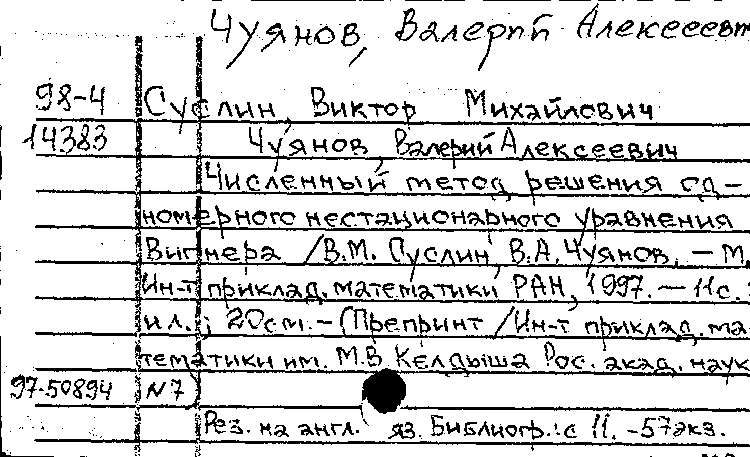 Чуянов, Валерий Алексеевич
98-4 Суслин, Виктор Михайлович
14383 Чуянов, Валерий Алексеевич
Численный метод решения од-
номерного нестационарного уравнения
Вигнера /В.М. Суслин, В.А. Чуянов. – М.
Ин-т приклад. математики РАН, 1997. – 11с. :
ил. ; 20см. – (Препринт /Ин-т приклад. ма-
тематики им. М.В Келдыша Рос. акад. наук
97-50894 N7)
Рез. на англ. яз. Библиогр.: с 11. -57экз.